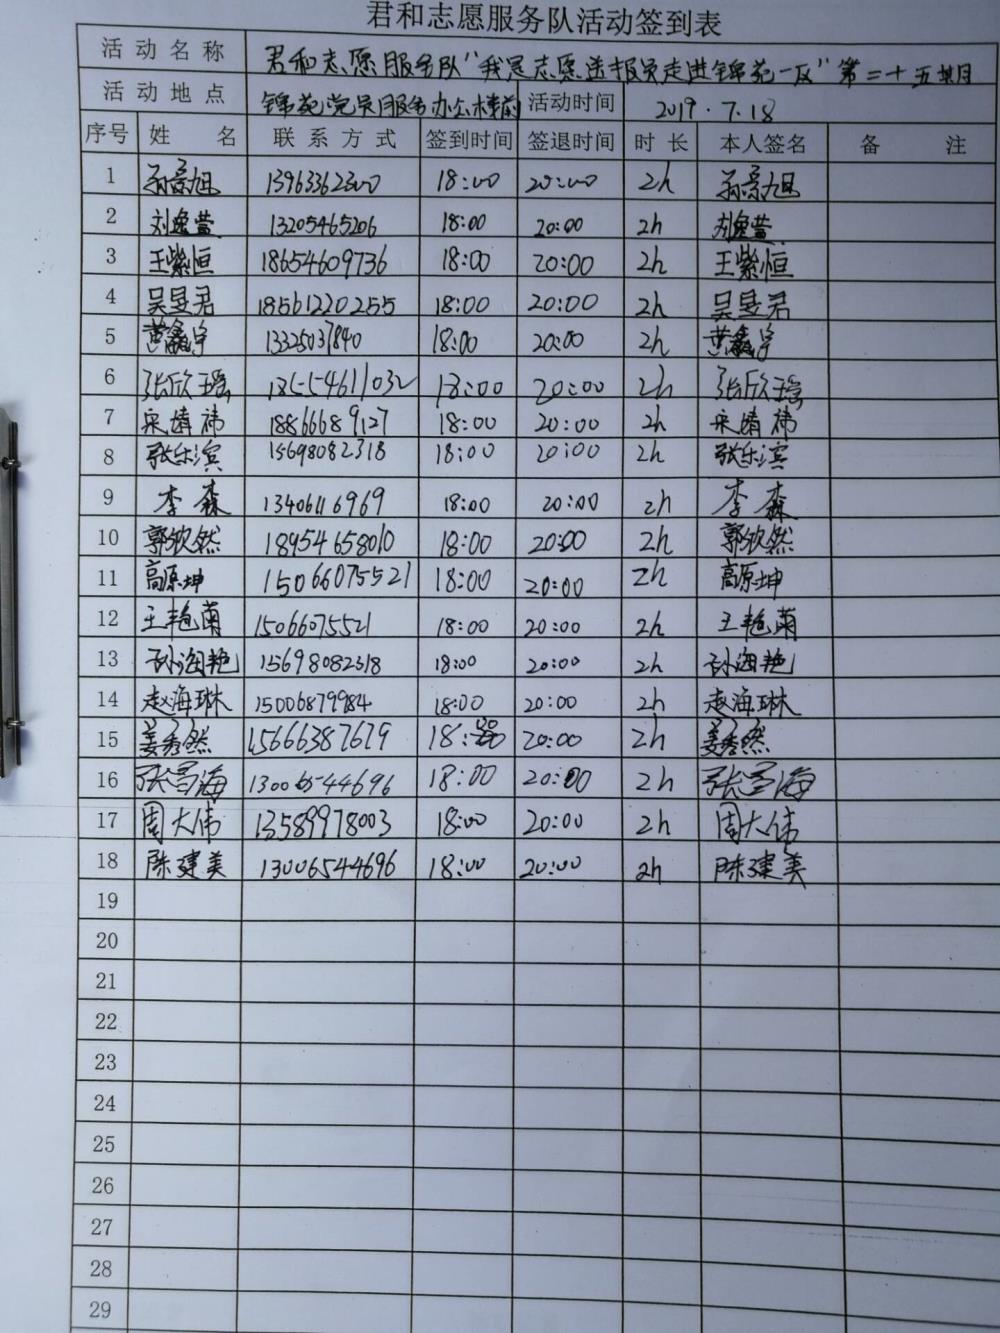 君和志愿服务队活动签到表
活动名称 君和志愿服务队“我是志愿送报员走进锦苑一区”第二十五期
活动地点 锦苑党员服务办公楼前 活动时间 2019.7.18
序号 姓名 联系方式 签到时间 签退时间 时长 本人签名 备注
1 孙景旭 13963362300 18:00 20:00 2h 孙景旭
2 刘逸萱 13205465206 18:00 20:00 2h 刘逸萱
3 王紫恒 18654609736 18:00 20:00 2h 王紫恒
4 吴旻君 18561220255 18:00 20:00 2h 吴旻君
5 黄鑫宇 13325037840 18:00 20:00 2h 黄鑫宇
6 张欣瑶 18554611032 18:00 20:00 2h 张欣瑶
7 宋婧祎 18866689127 18:00 20:00 2h 宋婧祎
8 张乐滨 15698082318 18:00 20:00 2h 张乐滨
9 李森 13406116969 18:00 20:00 2h 李森
10 郭欣然 18954658010 18:00 20:00 2h 郭欣然
11 高原坤 15066075521 18:00 20:00 2h 高原坤
12 王艳菊 15066075521 18:00 20:00 2h 王艳菊
13 孙海艳 15698082318 18:00 20:00 2h 孙海艳
14 赵海琳 15006879984 18:00 20:00 2h 赵海琳
15 姜秀然 15666387679 18:00 20:00 2h 姜秀然
16 张雪海 13006544696 18:00 20:00 2h 张雪海
17 周大伟 13589978003 18:00 20:00 2h 周大伟
18 陈建美 13006544696 18:00 20:00 2h 陈建美
19
20
21
22
23
24
25
26
27
28
29